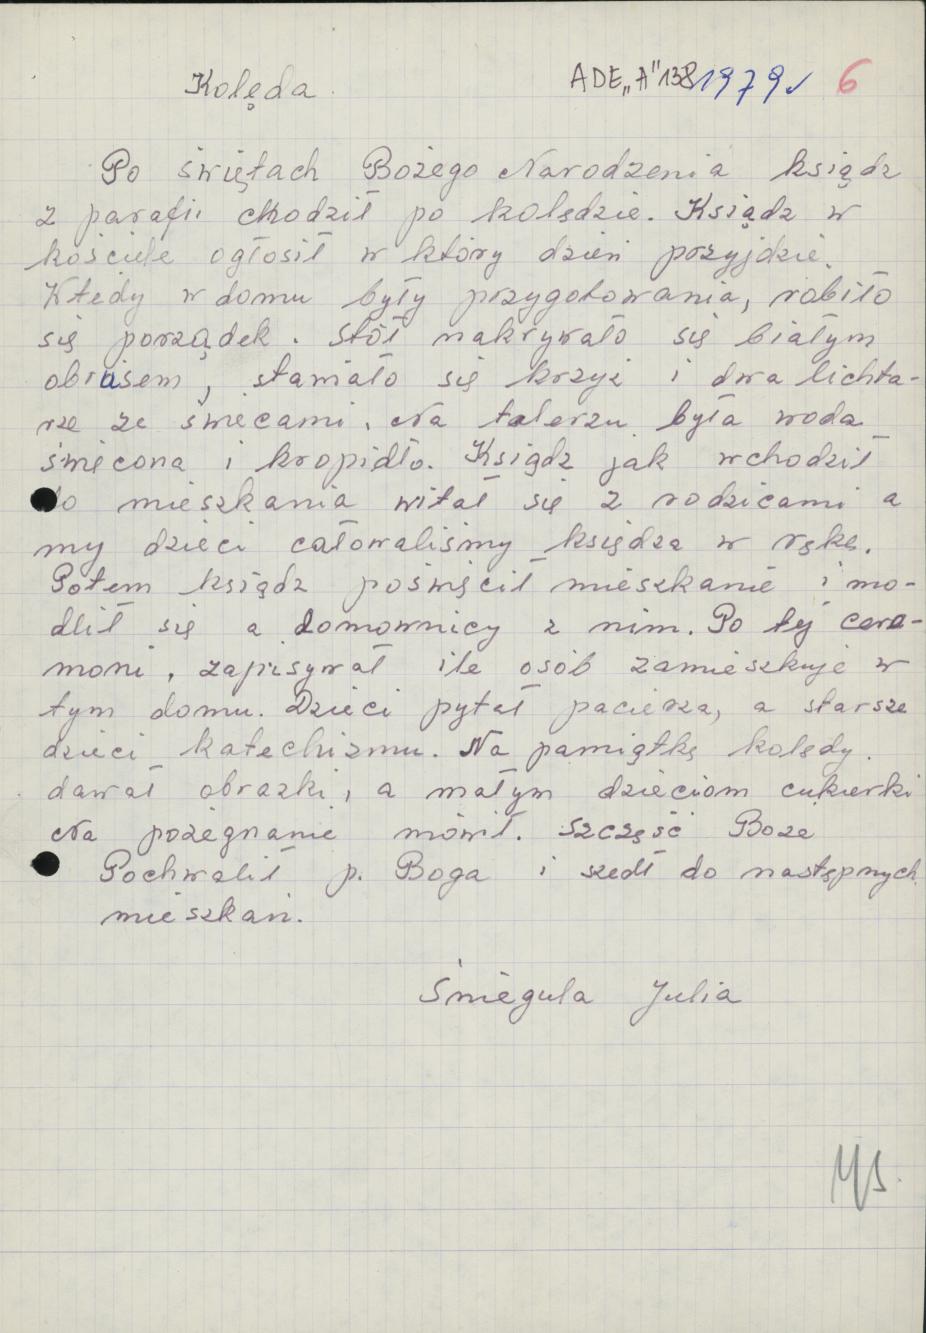 Kolęda.
ADE „A" 138 1979 6
Po świętach Bożego Narodzenia ksiądz
z parafii chodził po kolędzie. Ksiądz w
kościele ogłosił w który dzień przyjdzie.
Wtedy w domu były przygotowania, robiło
się porządek. Stół nakrywało się białym
obrusem, stawiało się krzyż i dwa lichta-
rze ze świecami. Na talerzu była woda
święcona i kropidło. Ksiądz jak wchodził
do mieszkania witał się z rodzicami a
my dzieci całowaliśmy księdza w rękę.
Potem ksiądz poświęcił mieszkanie i mo-
dlił się a domownicy z nim. Po tej cere-
moni, zapisywał ile osób zamieszkuje w
tym domu. Dzieci pytał pacierza, a starsze
dzieci katechizmu. Na pamiątkę kolędy
dawał obrazki, a małym dzieciom cukierki
Na pożegnanie mówił. Szczęść Boże
Pochwalił p. Boga i szedł do następnych
mieszkań.
Śniegula Julia